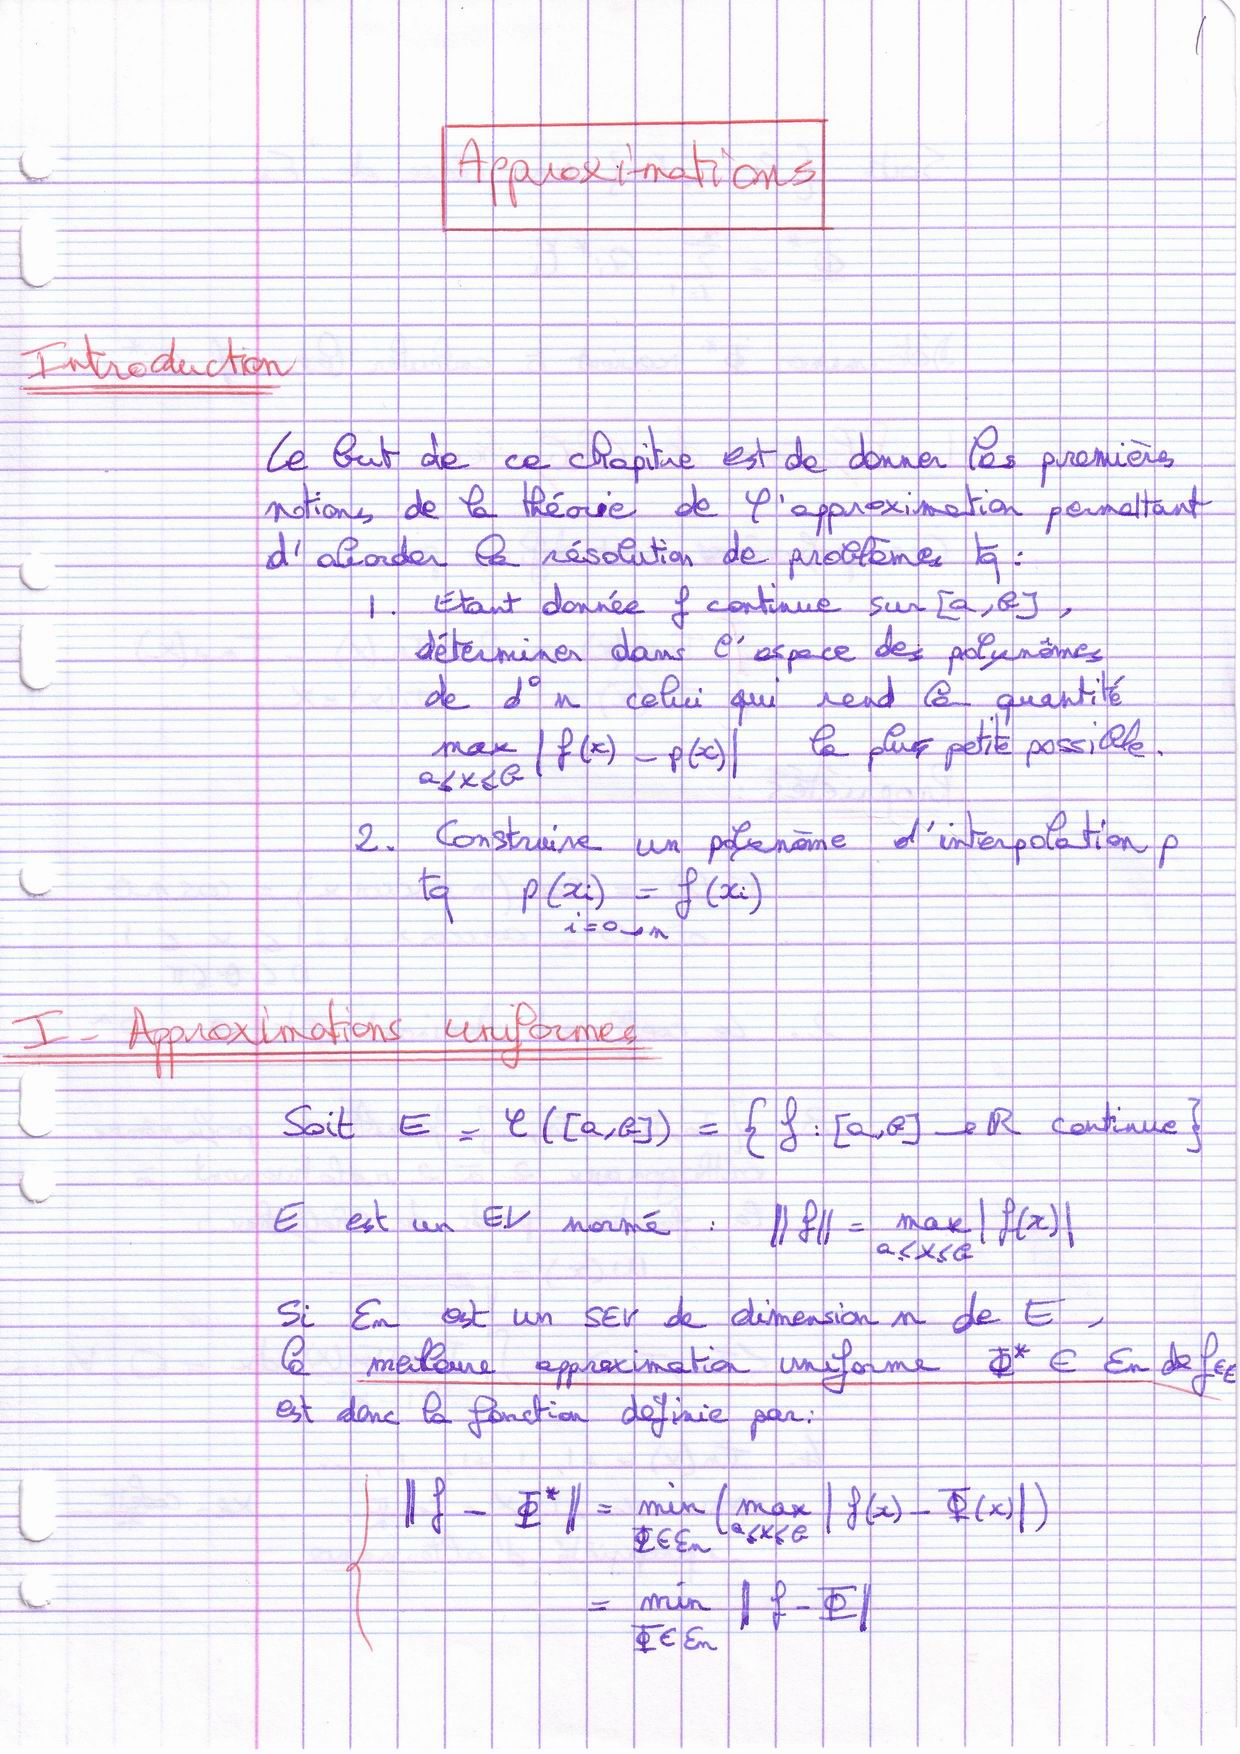 1
Approximations
Introduction
Le but de ce chapitre est de donner les premières
notions de la théorie de l'approximation permettant
d'aborder la résolution de problèmes tq :
1. Etant donnée f continue sur [a, b],
déterminer dans l'espace des polynômes
de d° n celui qui rend la quantité
max | f(x) - p(x)| la plus petite possible.
a≤x≤b
2. Construire un polynôme d'interpolation p
tq p(xi) = f(xi)
i=0→n
I - Approximations uniformes
Soit E = C([a,b]) = { f : [a,b] → R continue}
E est un EV normé : ||f|| = max | f(x)|
a≤x≤b
Si En est un SEV de dimension n de E,
la meilleure approximation uniforme Φ* ∈ En de f∈E
est donc la fonction définie par :
|| f - Φ* || = min ( max | f(x) - Φ(x)| )
Φ∈En a≤x≤b
= min || f - Φ ||
Φ∈En